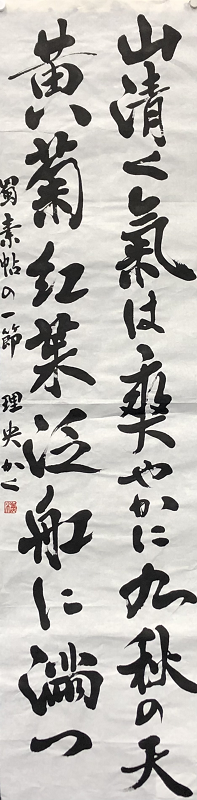 山清く氣は爽やかに九秋の天
黄菊紅葉泛船に満つ
蜀素帖の一節 理央かく